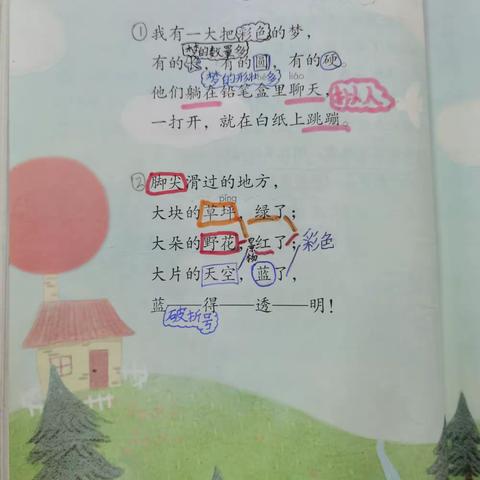 ①我有一大把彩色的梦，
梦的数量多
有的长，有的圆，有的硬。
梦的形状多
liáo
他们躺在铅笔盒里聊天，
拟人
一打开，就在白纸上跳蹦。
②脚尖滑过的地方，
píng
大块的草坪，绿了；
大朵的野花，红了；
景物
彩色
大片的天空，蓝了，
蓝——得——透——明！
破折号